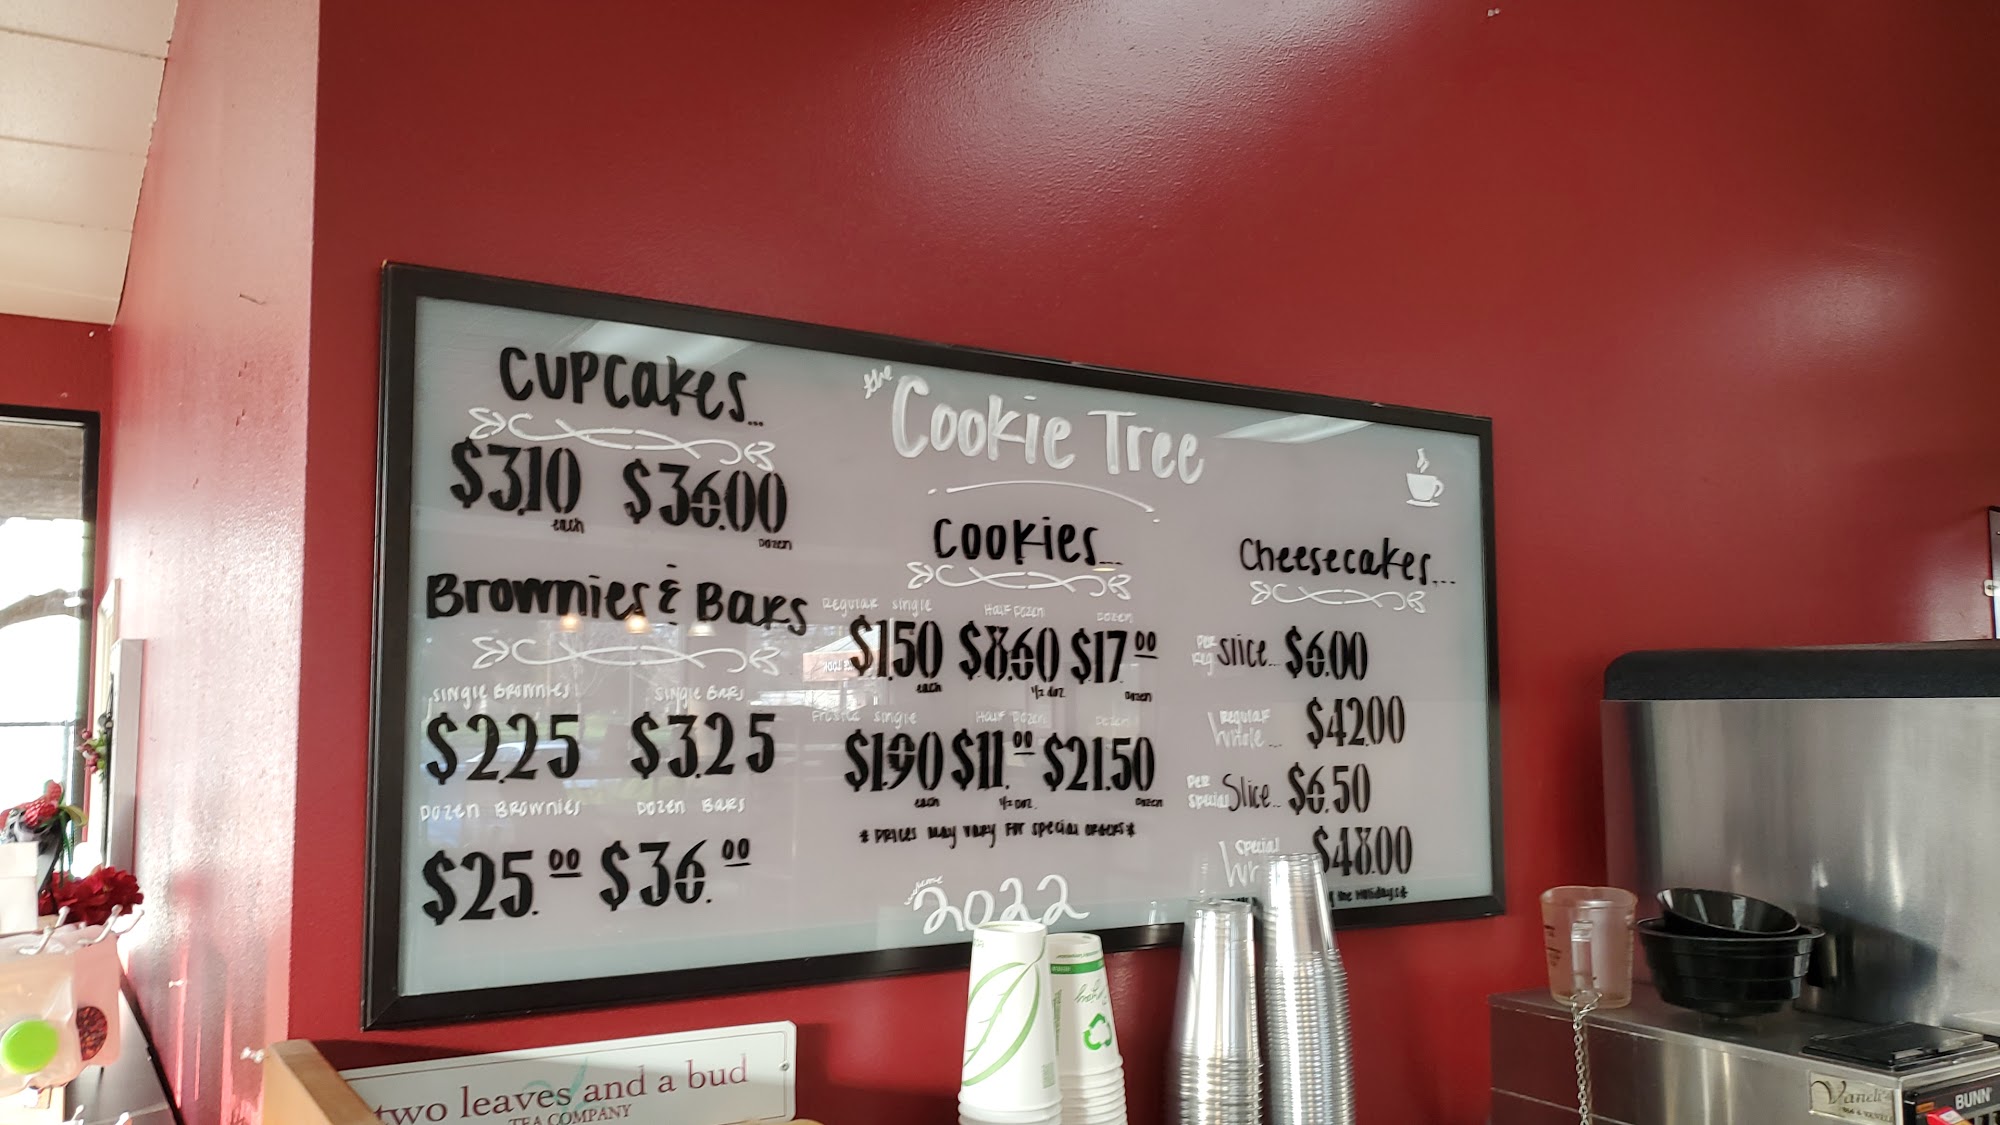 the Cookie Tree
Cupcakes...
$3.10 each $36.00 Dozen
Brownies & Bars
Single Brownies Single Bars
$2.25 $3.25
Dozen Brownies Dozen Bars
$25.00 $36.00
Cookies...
Regular Single Half Dozen Dozen
$1.50 each $8.60 1/2 doz. $17.00 Dozen
Frosted Single Half Dozen Dozen
$1.90 each $11.00 1/2 doz. $21.50 Dozen
* Prices may vary for special orders *
welcome 2022
Cheesecakes...
Per Reg Slice... $6.00
Regular Whole... $42.00
Per Special Slice... $6.50
Special Wh $48.00
the Holidays *
two leaves and a bud
TEA COMPANY
BUNN